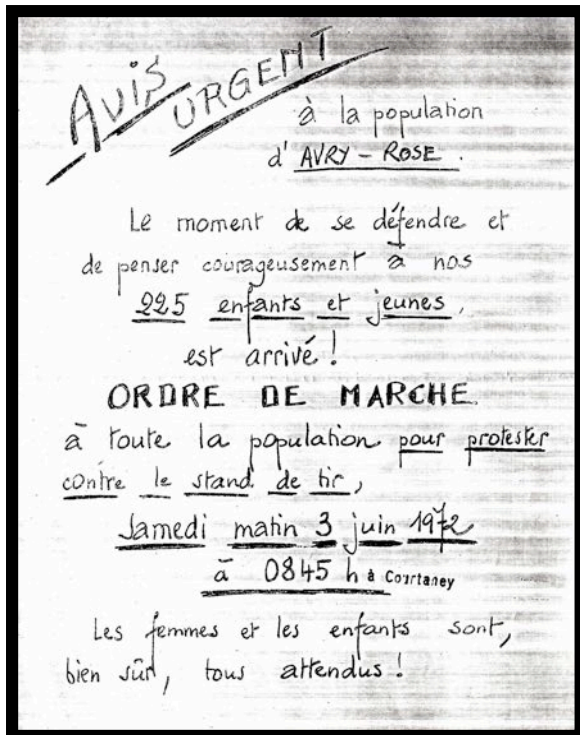 AVIS
URGENT
à la population
d'AVRY - ROSE.
Le moment de se défendre et
de penser courageusement à nos
225 enfants et jeunes,
est arrivé !
ORDRE DE MARCHE
à toute la population pour protester
contre le stand de tir,
Samedi matin 3 juin 1972
à 0845 h à Courtaney
Les femmes et les enfants sont,
bien sûr, tous attendus !